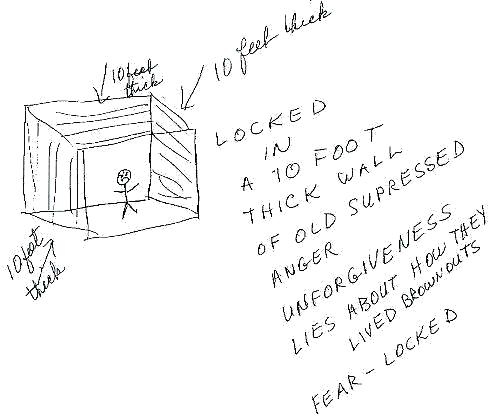 10 feet
thick
10 feet thick
10 foot
thick
LOCKED
IN
A 10 FOOT
THICK WALL
OF OLD SUPRESSED
ANGER
UNFORGIVENESS
LIES ABOUT HOW THEY
LIVED BROWNOUTS
FEAR - LOCKED